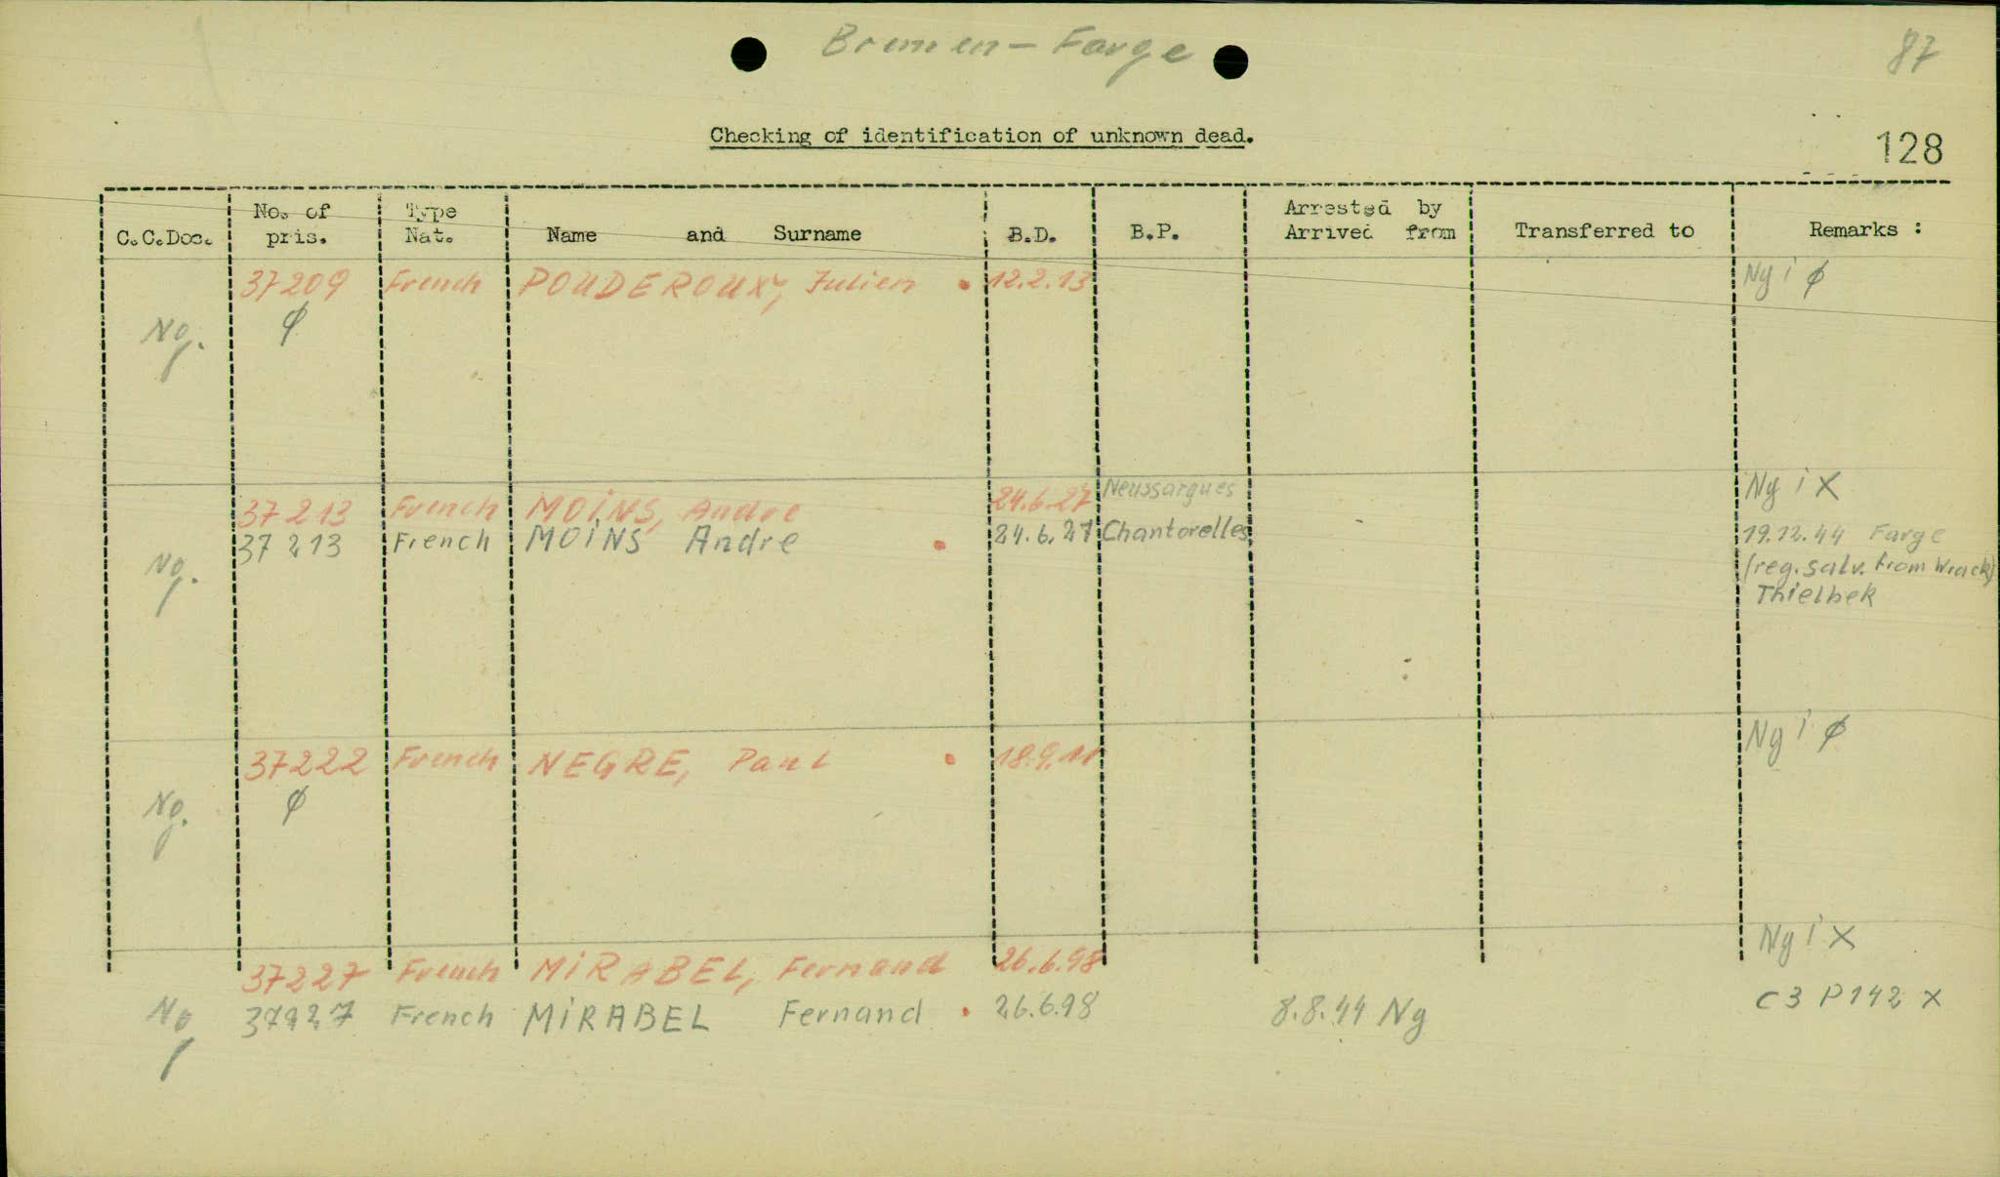 Bremen - Farge
87
Checking of identification of unknown dead.
128
C.C.Doc. No. of pris. Type Nat. Name and Surname B.D. B.P. Arrested by Arrived from Transferred to Remarks :
37209 French POUDEROUX, Julien 12.2.13 Ng i ø
Ng. ø
37213 French MOiNS, Andre 24.6.27 Neussargues Ng i X
37213 French MOiNS Andre 24.6.27 Chantorelles 19.12.44 Farge
Ng. (reg. salv. from Wrack)
Thielbek
37222 French NEGRE, Paul 18.9.11 Ng i ø
Ng. ø
37227 French MiRABEL, Fernand 26.6.98 Ng i X
Ng 37227 French MiRABEL Fernand 26.6.98 8.8.44 Ng C3 P142 X